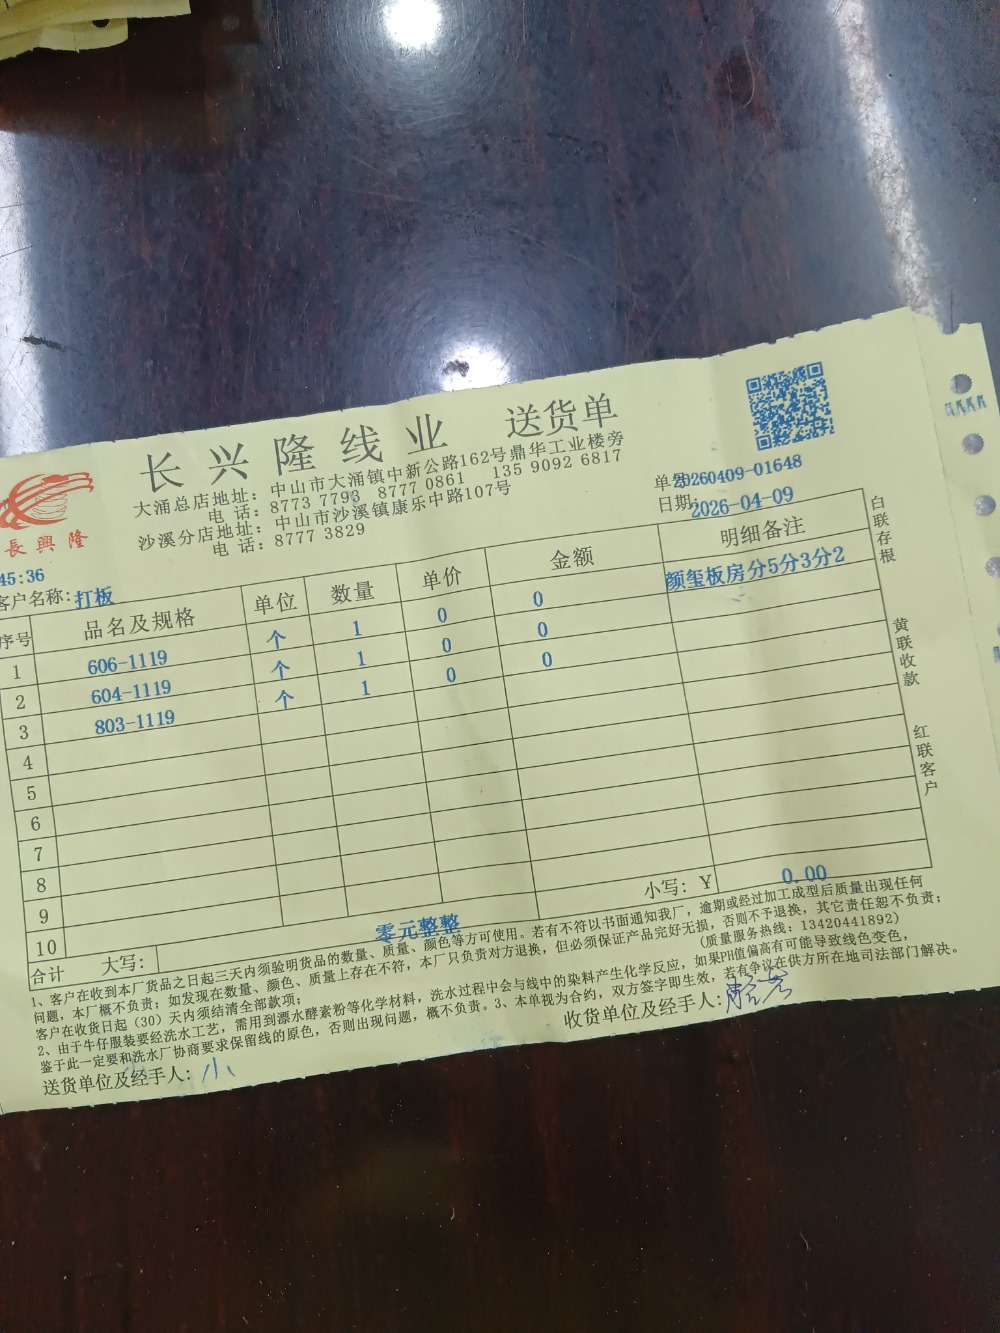 长兴隆线业 送货单
大涌总店地址：中山市大涌镇中新公路162号鼎华工业楼旁
电 话：8773 7793 8777 0861 135 9092 6817
沙溪分店地址：中山市沙溪镇康乐中路107号
电 话：8777 3829
長興隆
单号 20260409-01648
日期: 2026-04-09
45:36
客户名称: 打板
序号 品名及规格 单位 数量 单价 金额 明细备注
1 606-1119 个 1 0 0 颜玺板房分5分3分2
2 604-1119 个 1 0 0
3 803-1119 个 1 0 0
4
5
6
7
8
9
10
合计 大写: 零元整整 小写: ¥ 0.00
白联存根
黄联收款
红联客户
1、客户在收到本厂货品之日起三天内须验明货品的数量、质量、颜色等方可使用。若有不符以书面通知我厂，逾期或经过加工成型后质量出现任何
问题，本厂概不负责；如发现在数量、颜色、质量上存在不符，本厂只负责对方退换，但必须保证产品完好无损，否则不予退换，其它责任恕不负责；
客户在收货日起（30）天内须结清全部款项； （质量服务热线：13420441892）
2、由于牛仔服装要经洗水工艺，需用到漂水酵素粉等化学材料，洗水过程中会与线中的染料产生化学反应，如果PH值偏高有可能导致线色变色，
鉴于此一定要和洗水厂协商要求保留线的原色，否则出现问题，概不负责。3、本单视为合约，双方签字即生效，若有争议在供方所在地司法部门解决。
送货单位及经手人: 小 收货单位及经手人: